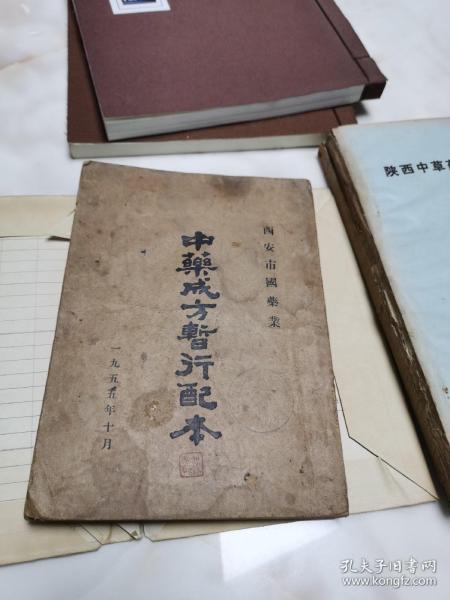 西安市國藥業
中藥成方暫行配本
一九五五年十月
陕西中草
孔夫子旧书网
www.kongfz.com